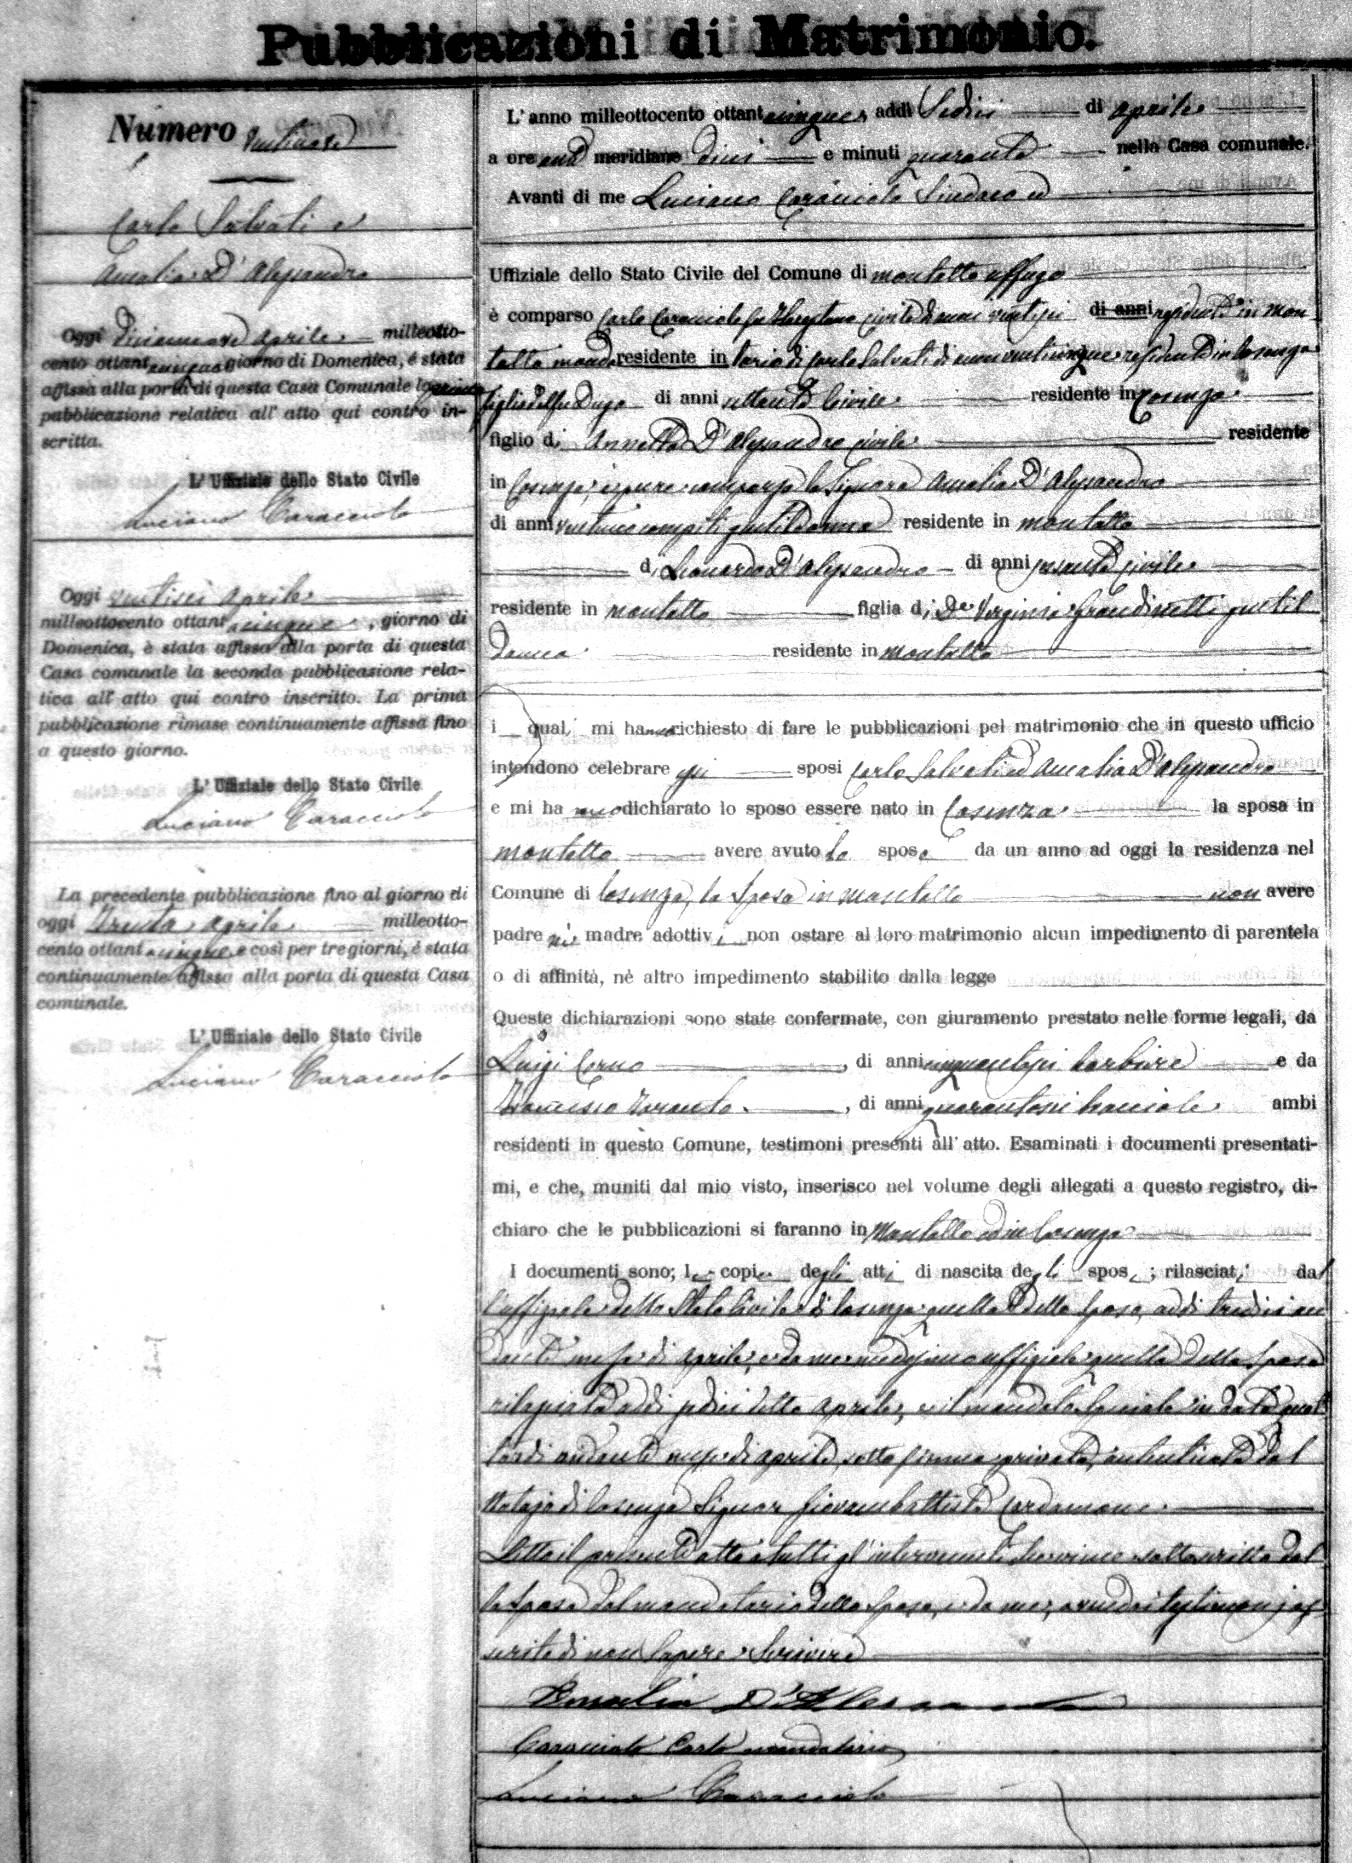 Pubblicazioni di Matrimonio.
Numero ventinove
Carlo Salvati e
Amalia D'Alessandro
Oggi diciannove Aprile milleotto-
cento ottantacinque giorno di Domenica, é stata
affissa alla porta di questa Casa Comunale la prima
pubblicazione relativa all' atto qui contro in-
scritta.
L' Uffiziale dello Stato Civile
Luciano Caracciolo
Oggi ventisei Aprile
milleottocento ottantacinque, giorno di
Domenica, è stata affissa alla porta di questa
Casa comunale la seconda pubblicazione rela-
tica all' atto qui contro inscritto. La prima
pubblicazione rimase continuamente affissa fino
a questo giorno.
L' Uffiziale dello Stato Civile
Luciano Caracciolo
La precedente pubblicazione fino al giorno di
oggi Trenta Aprile milleotto-
cento ottantacinque e così per tre giorni, é stata
continuamente affissa alla porta di questa Casa
comunale.
L' Uffiziale dello Stato Civile
Luciano Caracciolo
L' anno milleottocento ottantacinque, addì Sedici di Aprile
a ore anti meridiane dieci e minuti quaranta nella Casa comunale.
Avanti di me Luciano Caracciolo Sindaco ed
Uffiziale dello Stato Civile del Comune di Montalto Uffugo
è comparso Carlo Caracciolo fu civile di anni ventisei di anni residente in Mon
talto manda residente in tario di Carlo Salvati di anni venticinque residente in Cosenza
figlio del fu di anni settanta Civile residente in Cosenza
figlio di Annetta D'Alessandro civile residente
in Cosenza, è pure comparsa la Signora Amalia D'Alessandro
di anni compiti gentildonna residente in Montalto
di Leonardo D'Alessandro di anni sessanta civile
residente in Montalto figlia di De Virginia Grandinetti gentil
donna residente in Montalto
i quali mi hanno richiesto di fare le pubblicazioni pel matrimonio che in questo ufficio
intendono celebrare essi sposi Carlo Salvati ed Amalia D'Alessandro
e mi hanno dichiarato lo sposo essere nato in Cosenza la sposa in
Montalto avere avuto lo sposo da un anno ad oggi la residenza nel
Comune di Cosenza, la sposa in Montalto non avere
padre né madre adottivi non ostare al loro matrimonio alcun impedimento di parentela
o di affinità, né altro impedimento stabilito dalla legge
Queste dichiarazioni sono state confermate, con giuramento prestato nelle forme legali, da
Luigi , di anni cinquantasei barbiere e da
Francesco Taranto, di anni quarantasei bracciale ambi
residenti in questo Comune, testimoni presenti all' atto. Esaminati i documenti presentati-
mi, e che, muniti dal mio visto, inserisco nel volume degli allegati a questo registro, di-
chiaro che le pubblicazioni si faranno in Montalto ed in Cosenza
I documenti sono; le copie degli atti di nascita degli sposi; rilasciati dal
l'uffiziale dello Stato Civile di Cosenza quella dello sposo, addì tredici an
dante mese di Aprile, e da me medesimo uffiziale quella della sposa
rilasciata addì sedici detto Aprile, e il mandato speciale in data quat
tordici andante mese di Aprile, sotto firma privata, autenticata dal
Notajo di Cosenza Signor Giovambattista Cardamone
Letto il presente atto a tutti gl'intervenuti viene sottoscritto dal
la sposa dal mandatario dello sposo, e da me, avendo i testimonj as
serito di non sapere scrivere
Amalia D'Alessandro
Caracciolo Carlo mandatario
Luciano Caracciolo